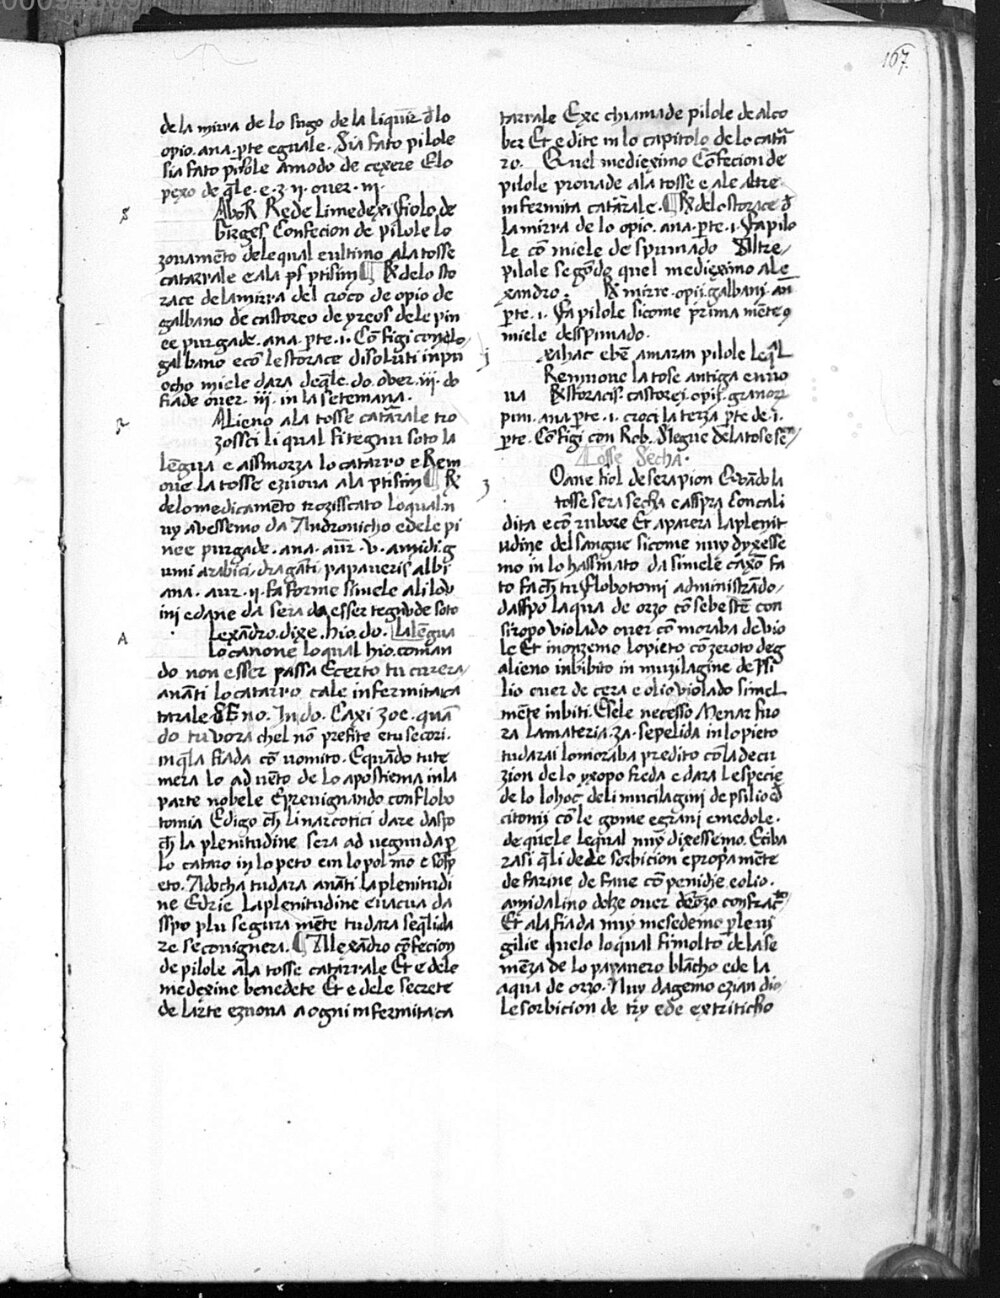 00094809
167
de la mirra de lo sugo de la liquir. d lo
opio. ana. pte eguale. Sia fato pilole
sia fato pirole amodo de cexere E lo
pexo de qle. e. ʒ. ij. ouer. iij.
s
AboR Rede li medexi fiolo de
birges Confecion de pilole lo
zouamēto dele qual e ultimo ala tosse
catarrale e ala ps ptisim ¶ ℞ de lo sto
race dela mirra del croco de opio de
galbano de castoreo de yreos dele pin
ee purgade. ana. pte. i. Cō figi con elo
galbano e cō le storace disoluti in pu
ocho miele dara deqle. do. ouer. iij. do
fiade ouer. iij. in la setemana.
r
ALieno ala tosse catarale tro
zossci li qual si tegnu soto la
lēgua e assmorza lo catarro e Rem
oue la tosse e zuoua ala ptisim ¶ ℞
delo medicamēto trozisscato lo qual. n
uy auessemo da Andronicho e dele pi
nee purgade. ana. aur. v. amidi. g
umi arabici. dragāti. papaueris albi
ana. aur. ij. fa forme simele ali lou
ini e dane da sera da esser tegnude soto
A
Lexādro. dixe. hio. do. La lēgua
lo canone lo qual hio. coman
do non esser passa E certo tu curera
anāti lo catarro. tale infermita ca
tarale E E no. In do. Caxi zoe. quā
do tu vora chel nō prefite e tu secori.
in qla fiada cō uomito. E quādo tu te
mera lo aduēto de lo apostiema in la
parte nobele E preuignando con flobo
tomia E digo ch li narcotici dare daspo
ch la plenitudine sera ad uegnuda p
lo cataro in lo peto e in lo polmo e sosp
eto. Adocha tu dara anāti la plenitudi
ne E drie la plenitudine euacua da
sspo plu segura mēte tu dara seqlida
ze se conuignera. ¶ Allexādro cōfecion
de pilole ala tosse catarrale Et e dele
medexine benedete Et e dele secrete
de larte e zuoua a ogni infermita ca
tarrale E xe chiamade pilole de alco
ber Et e dite in lo capitolo de lo catār
ro. Quel mediximo Cōfecion de
pilole prouade ala tosse e ale altre
infermita catarale. ¶ ℞ de lo storace d
la mirra de lo opio. ana. pte. i. Fa pilo
le cō miele despumado Altre
pilole segōdo quel mediximo ale
xandro. ℞ mirre. opii. galbani. an
pte. i. Fa pilole si come prima mēte 9
miele desspimado.
i
xahac ebē amaran pilole le ql
Remuoue la tose antiga e nuo
ua ℞ storacis. castorei. opii. granor
pini. ana. pte. i. croci la terza pte de. i.
pte. Cō figi con Rob. Segue de la tose se
Tosse Secha.
ʒ
Oane fiol de serapion Quādo la
tosse sera secha e asspra con cali
dita e cō rubore Et aparera la plenit
udine del sangue si come nuy dyxesse
mo in lo hassmato da simele caxō fa
to fach tu flobotomi administrādo
dasspo laqua de orzo cō sebestē con
siropo violado ouer cō moraba de vio
le Et inonzemo lo pieto cō zeroto de g
alieno inbibito in muzilagine de psi
lio ouer de cera e olio violado simel
mēte inbiti. E se le necesso Menar fuo
ra la materia. za. sepelida in lo pieto
tu darai lo moraba predito cō la decu
zion de lo yxopo freda e dara le specie
de lo lohoc deli mucilagini de psilio e d
citonij cō le gome e grani e medole.
de quele le qual nuy dixessemo. E ciba
rasi qli dede sorbicion e propia mēte
de farine de faue cō penidie e olio.
amidalino dolze ouer de orzo confracto
Et ala fiada nuy mesedemo p le ui
gilie quelo lo qual fi molto de la se
mēza de lo papauero blācho e de la
aqua de orzo. Nuy dagemo ezian dio
le sorbicion de try e de extriticho